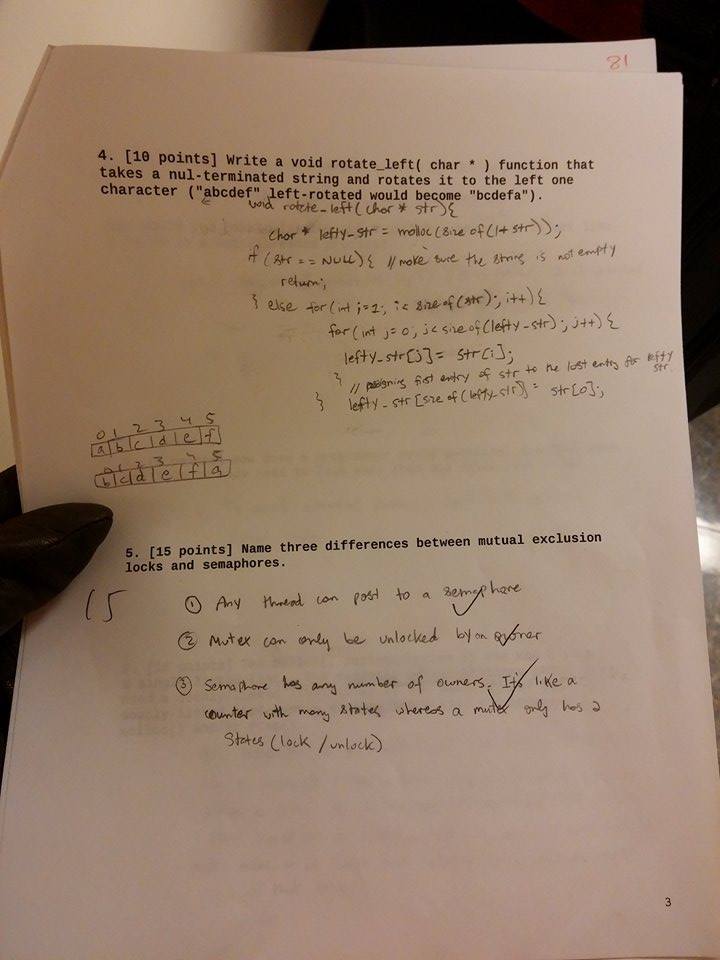 81
4. [10 points] Write a void rotate_left( char * ) function that
takes a nul-terminated string and rotates it to the left one
character ("abcdef" left-rotated would become "bcdefa").
void rotate_left(char * str){
char * lefty_str = malloc(size of(1+ str));
if (str == NULL){ //make sure the string is not empty
return;
} else for(int i=1; i< size of(str); i++){
for(int j=0; j< size of(lefty_str); j++){
lefty_str[j] = str[i];
} // first entry of str to the last entry for lefty
str.
} lefty_str[size of(lefty_str)] = str[0];
0 1 2 3 4 5
a b c d e f
0 1 2 3 4 5
b c d e f a
5. [15 points] Name three differences between mutual exclusion
locks and semaphores.
15
① Any thread can post to a semaphore
② Mutex can only be unlocked by an owner
③ Semaphore has any number of owners. It's like a
counter with many states whereas a mutex only has 2
States (lock / unlock)
3